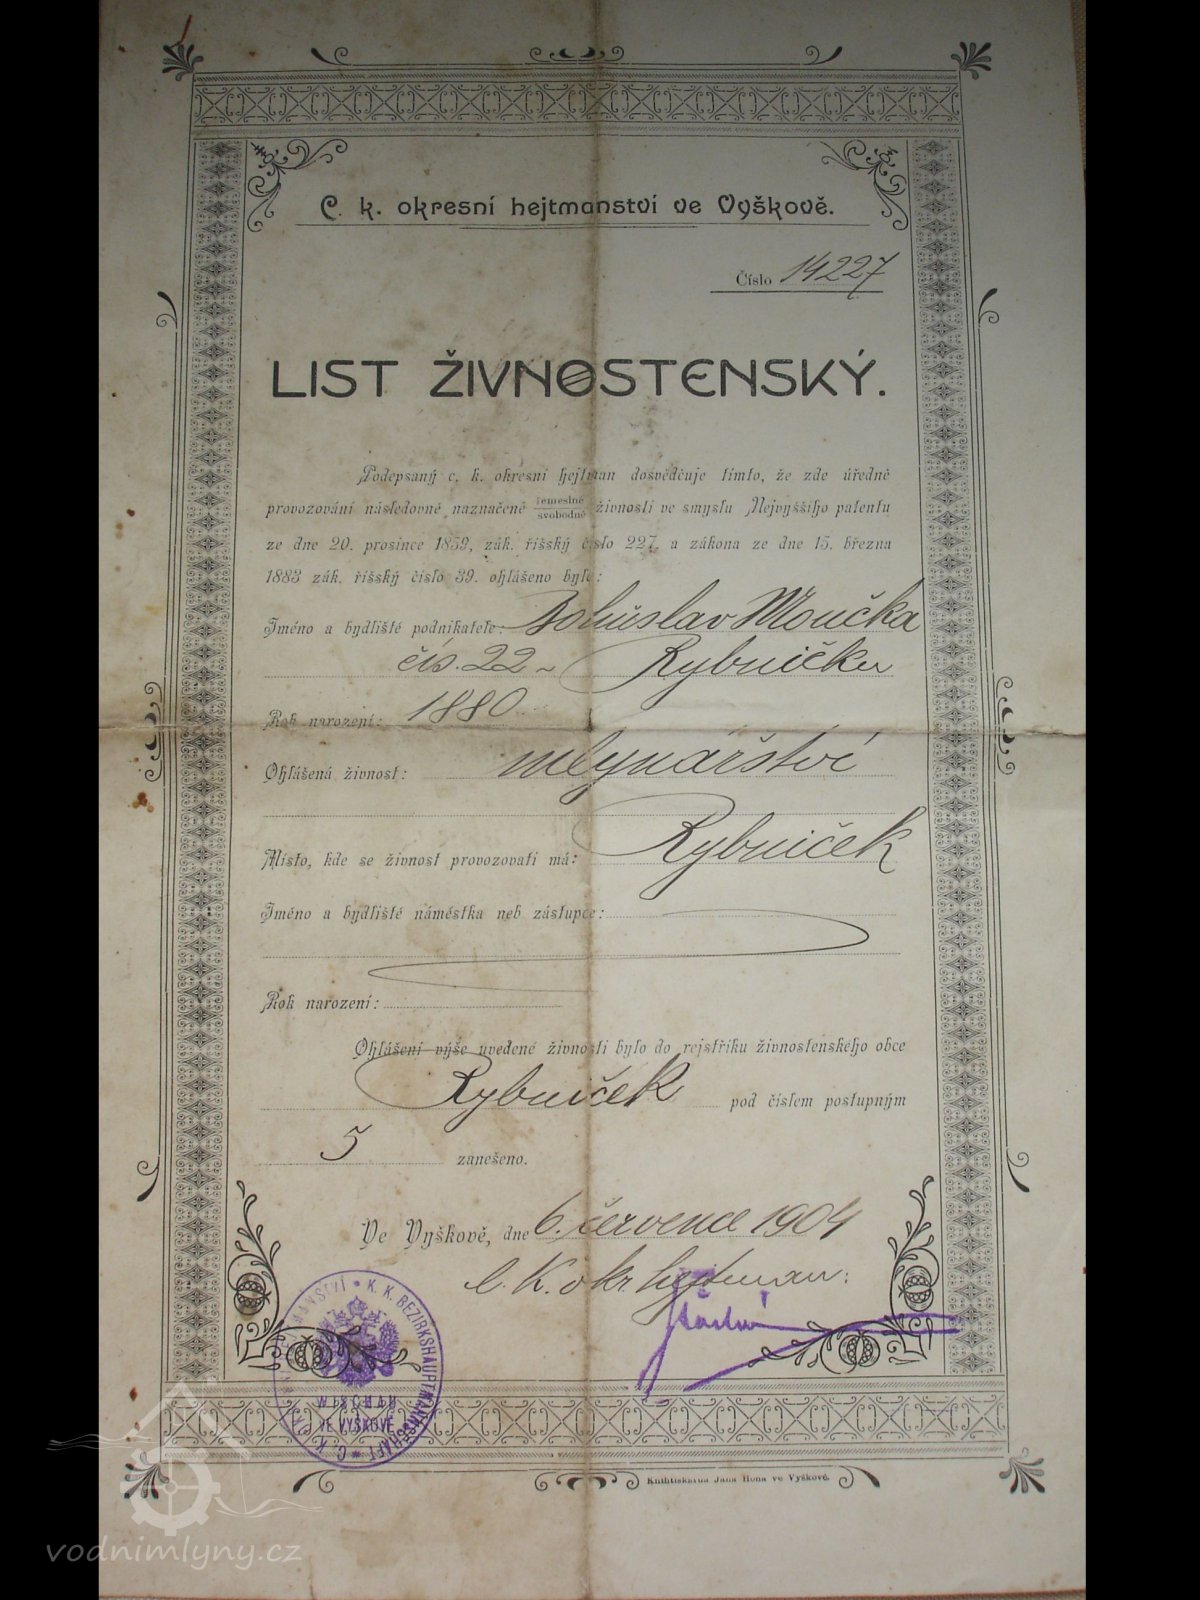 C. k. okresní hejtmanství ve Vyškově.
Číslo 14227
LIST ŽIVNOSTENSKÝ.
Podepsaný c. k. okresní hejtman dosvědčuje tímto, že zde úředně
provozování následovně naznačené řemeslné svobodné živnosti ve smyslu Nejvyššího patentu
ze dne 20. prosince 1859, zák. říšský číslo 227. a zákona ze dne 15. března
1883 zák. říšský číslo 39. ohlášeno bylo:
Jméno a bydliště podnikatele: Bohuslav Moučka
čís. 22 - Rybníčku
Rok narození: 1880
Ohlášená živnost: mlynářství
Místo, kde se živnost provozovati má: Rybníček
Jméno a bydliště náměstka neb zástupce:
Rok narození:
Ohlášení výše uvedené živnosti bylo do rejstříku živnostenského obce
Rybníček pod číslem postupným
5 zanešeno.
Ve Vyškově, dne 6. července 1904
C. K. okr. hejtman:
K. K. BEZIRKSHAUPTMANNSCHAFT * C. K.
WISCHAU
VE VYŠKOVĚ
Knihtiskárna Jana Hona ve Vyškově.
vodnimlyny.cz